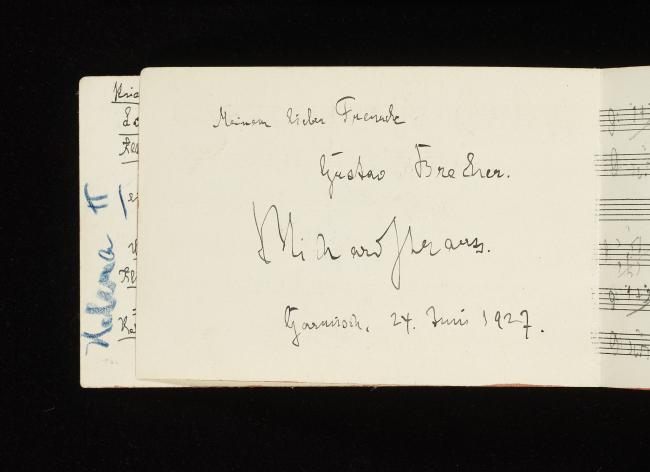 Helena II
Meinem lieben Freunde
Gustav Brecher.
Richard Strauss.
Garmisch, 24. Juni 1927.